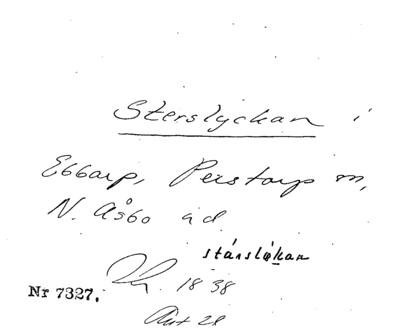 Sterslyckan i
Ebbarp, Perstorp sn,
N. Åsbo hd
stärslökan
Nr 7327. 1838
Akt 28